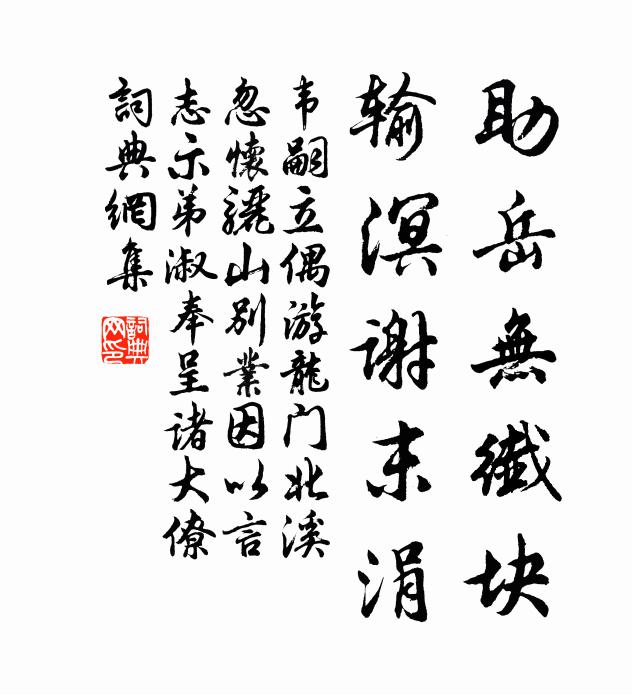 助岳無纖块
输溟谢末涓
韦嗣立偶游龍门北溪
忽懷骊山别業因以言
志示弟淑奉呈诸大僚
詞典網集
詞典网印